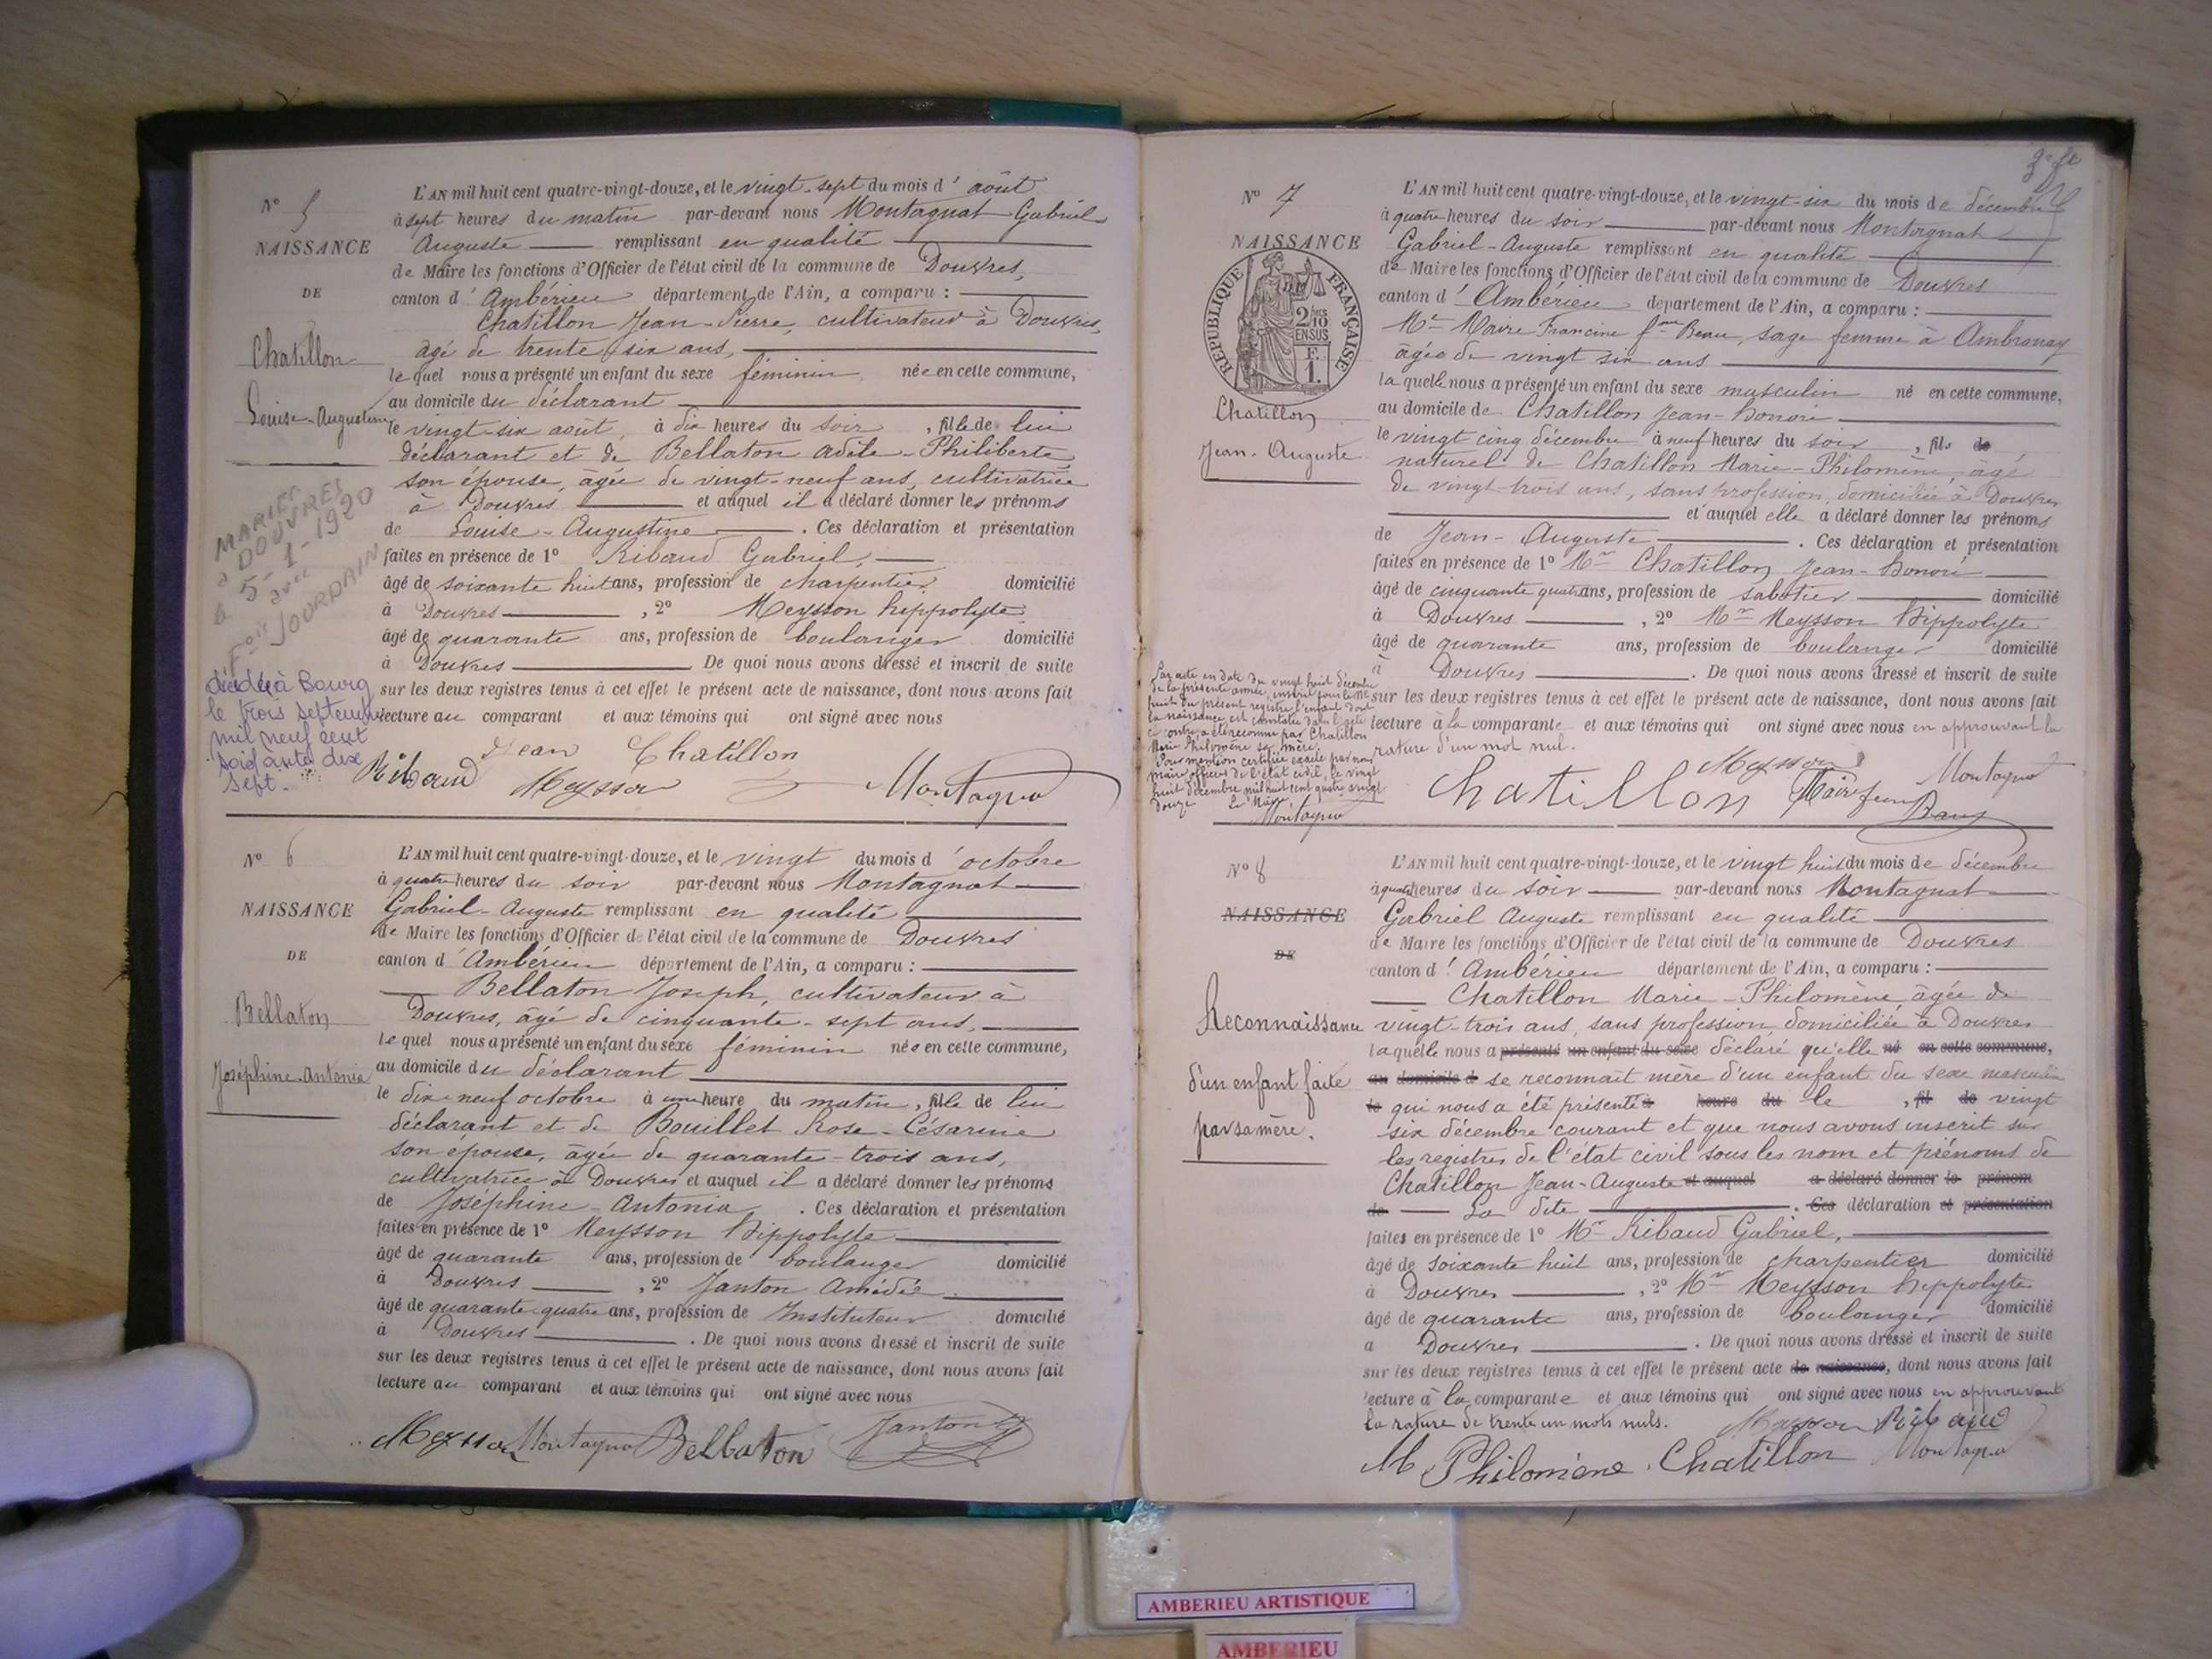 N° 5
NAISSANCE
DE
Chatillon
Louise-Augustine
MARIÉE
à DOUVRES
le 5-1-1920
avec
JOURDAIN
décédée à Bourg
le trois septembre
mil neuf cent
soixante dix
sept.
L'AN mil huit cent quatre-vingt-douze, et le vingt-sept du mois d'août
à sept heures du matin par-devant nous Montagnat Gabriel
Auguste remplissant en qualité
de Maire les fonctions d'Officier de l'état civil de la commune de Douvres,
canton d'Ambérieu département de l'Ain, a comparu :
Chatillon Jean-Pierre, cultivateur à Douvres,
âgé de trente six ans,
lequel nous a présenté un enfant du sexe féminin née en cette commune,
au domicile du déclarant
le vingt-six août, à dix heures du soir, fille de lui
déclarant et de Bellaton Adèle-Philiberte
son épouse, âgée de vingt-neuf ans, cultivatrice
à Douvres et auquel il a déclaré donner les prénoms
de Louise-Augustine. Ces déclaration et présentation
faites en présence de 1° Ribaud Gabriel,
âgé de soixante huit ans, profession de charpentier domicilié
à Douvres, 2° Meysson hippolyte
âgé de quarante ans, profession de boulanger domicilié
à Douvres De quoi nous avons dressé et inscrit de suite
sur les deux registres tenus à cet effet le présent acte de naissance, dont nous avons fait
lecture au comparant et aux témoins qui ont signé avec nous
Jean Chatillon
Ribaud Meysson Montagna
N° 6
NAISSANCE
DE
Bellaton
Joséphine-Antonia
L'AN mil huit cent quatre-vingt-douze, et le vingt du mois d'octobre
à quatre heures du soir par-devant nous Montagnat
Gabriel-Auguste remplissant en qualité
de Maire les fonctions d'Officier de l'état civil de la commune de Douvres
canton d'Ambérieu département de l'Ain, a comparu :
Bellaton Joseph, cultivateur à
Douvres, âgé de cinquante-sept ans,
lequel nous a présenté un enfant du sexe féminin née en cette commune,
au domicile du déclarant
le dix-neuf octobre à une heure du matin, fille de lui
déclarant et de Bouillet Rose-Césarine
son épouse, âgée de quarante-trois ans,
cultivatrice à Douvres et auquel il a déclaré donner les prénoms
de Joséphine-Antonia. Ces déclaration et présentation
faites en présence de 1° Meysson hippolyte
âgé de quarante ans, profession de boulanger domicilié
à Douvres, 2° Janton Amédée
âgé de quarante-quatre ans, profession de Instituteur domicilié
à Douvres. De quoi nous avons dressé et inscrit de suite
sur les deux registres tenus à cet effet le présent acte de naissance, dont nous avons fait
lecture au comparant et aux témoins qui ont signé avec nous
Meysson Montagna Bellaton Janton
N° 7
NAISSANCE
DE
REPUBLIQUE FRANÇAISE
2/10
EN SUS
F.
1.
Chatillon
Jean-Auguste
Par acte en date du vingt huit décembre
de la présente année, inscrit sous le N°
huit du présent registre l'enfant dont
la naissance est constatée dans l'acte
ci contre a été reconnu par Chatillon
Marie Philomène sa mère.
Pour mention certifiée exacte par nous
maire, officier de l'état civil, le vingt
huit décembre mil huit cent quatre vingt
douze Le Maire
Montagna
L'AN mil huit cent quatre-vingt-douze, et le vingt-six du mois de décembre
à quatre heures du soir par-devant nous Montagnat
Gabriel-Auguste remplissant en qualité
de Maire les fonctions d'Officier de l'état civil de la commune de Douvres
canton d'Ambérieu département de l'Ain, a comparu :
Maire Francine fme Beau, sage femme à Ambronay
âgée de vingt six ans
laquelle nous a présenté un enfant du sexe masculin né en cette commune,
au domicile de Chatillon Jean-honoré
le vingt cinq décembre à neuf heures du soir, fils de
naturel de Chatillon Marie-Philomène, agé
de vingt-trois ans, sans profession, domiciliée à Douvres
et auquel elle a déclaré donner les prénoms
de Jean-Auguste. Ces déclaration et présentation
faites en présence de 1° Mr Chatillon Jean-honoré
âgé de cinquante quatre ans, profession de sabotier domicilié
à Douvres, 2° Mr Meysson hippolyte
âgé de quarante ans, profession de boulanger domicilié
à Douvres. De quoi nous avons dressé et inscrit de suite
sur les deux registres tenus à cet effet le présent acte de naissance, dont nous avons fait
lecture à la comparante et aux témoins qui ont signé avec nous en approuvant la
rature d'un mot nul.
Meysson Montagna
Chatillon
N° 8
NAISSANCE
DE
Reconnaissance
d'un enfant faite
par sa mère.
L'AN mil huit cent quatre-vingt-douze, et le vingt huit du mois de décembre
à quatre heures du soir par-devant nous Montagnat
Gabriel Auguste remplissant en qualité
de Maire les fonctions d'Officier de l'état civil de la commune de Douvres
canton d'Ambérieu département de l'Ain, a comparu :
Chatillon Marie-Philomène, âgée de
vingt-trois ans, sans profession, domiciliée à Douvres
laquelle nous a présenté un enfant du sexe déclaré qu'elle né en cette commune,
au domicile d se reconnait mère d'un enfant du sexe masculin
le qui nous a été présenté à heure du le, fil de vingt
six décembre courant et que nous avons inscrit sur
les registres de l'état civil sous les nom et prénoms de
Chatillon Jean-Auguste et auquel a déclaré donner le prénom
de La dite. Ces déclaration et présentation
faites en présence de 1° Mr Ribaud Gabriel,
âgé de soixante huit ans, profession de charpentier domicilié
à Douvres, 2° Mr Meysson hippolyte
âgé de quarante ans, profession de boulanger domicilié
à Douvres. De quoi nous avons dressé et inscrit de suite
sur les deux registres tenus à cet effet le présent acte de naissance, dont nous avons fait
lecture à la comparante et aux témoins qui ont signé avec nous en approuvant
la rature de trente un mots nuls. Meysson Ribaud
M Philomène Chatillon Montagna
AMBERIEU ARTISTIQUE
AMBERIEU